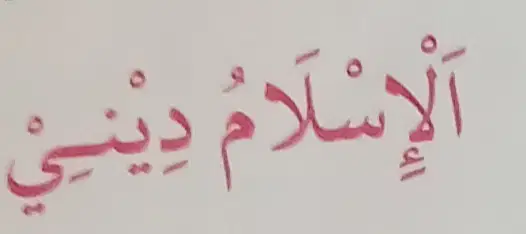 اَلْإِسْلَامُ دِيْنِيْ